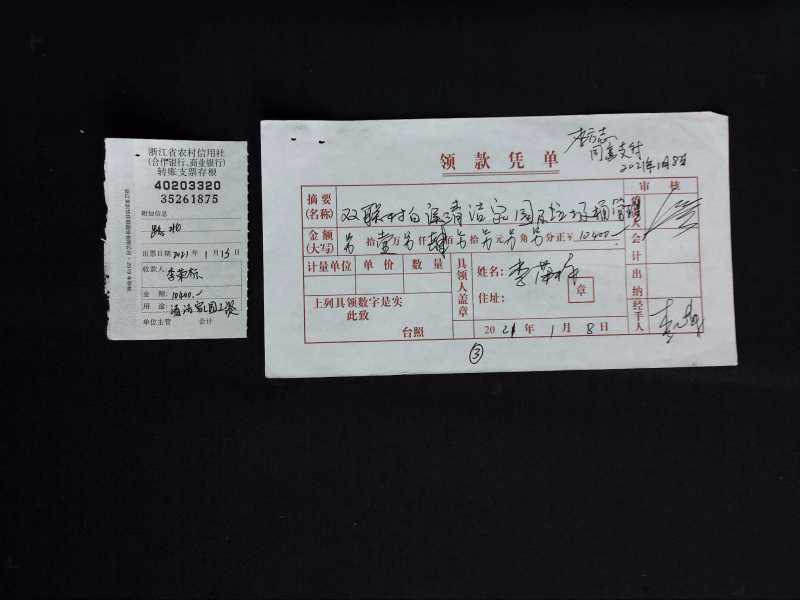 浙江省农村信用社
(合作银行、商业银行)
转账支票存根
40203320
35261875
附加信息
出票日期 2021 年 1 月 15 日
收款人: 李荣标
金 额: 10400.—
用 途: 清洁家园工资
单位主管 会计
同意支付
2021年1月8日
领 款 凭 单
审 核
摘 要
(名称)
双联村 清洁家园及垃圾桶
金 额
(大写)
另 拾 壹 万 仟 肆 佰 另 拾 另 元 另 角 另 分正 ¥ 10400.—
计量单位 单 价 数 量
具领人盖章
姓名: 李荣标
住址:
章
上列具领数字是实
此致
台照
2021 年 1 月 8 日
会计
出纳
经手人
③